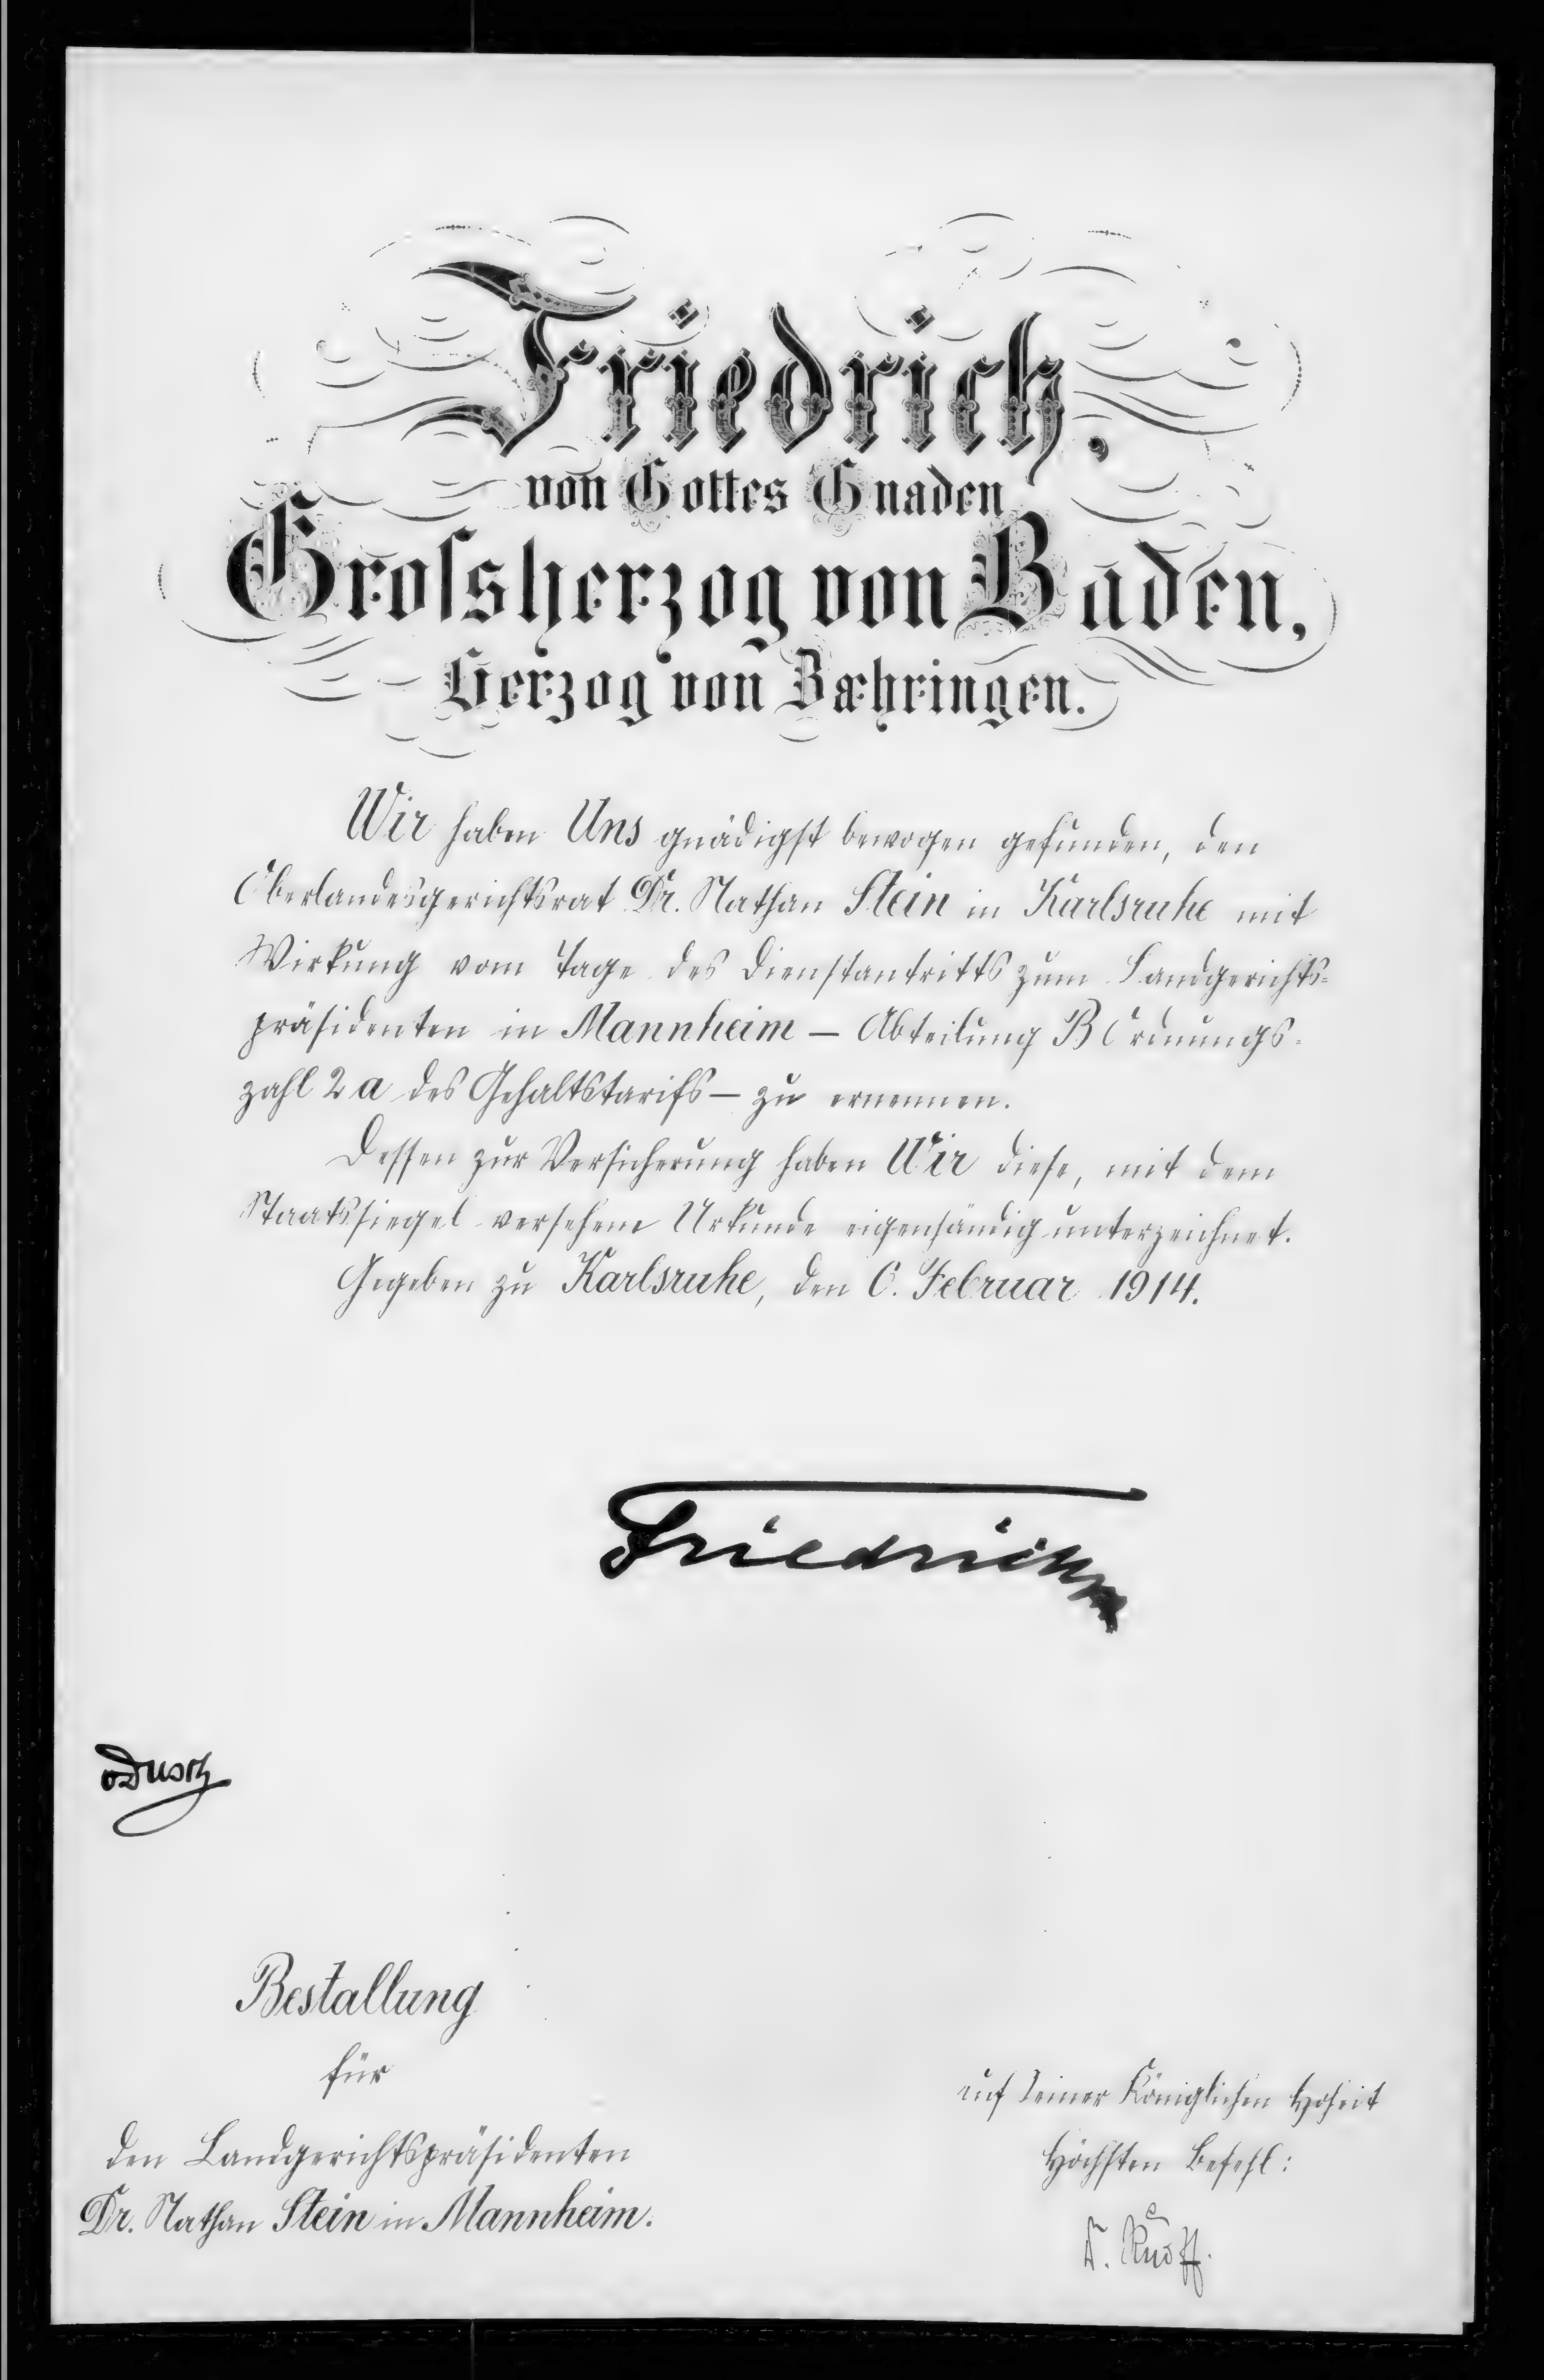 Friedrich,
von Gottes Gnaden
Grossherzog von Baden,
Herzog von Zæhringen.
Wir haben Uns gnädigst bewogen gefunden, den
Oberlandesgerichtsrat Dr. Nathan Stein in Karlsruhe mit
Wirkung vom Tage des Dienstantritts zum Landgerichts-
präsidenten in Mannheim – Abteilung B Ordnungs-
zahl 2 a des Gehaltstarifs – zu ernennen.
Dessen zur Versicherung haben Wir diese, mit dem
Staatssiegel versehene Urkunde eigenhändig unterzeichnet.
Gegeben zu Karlsruhe, den 6. Februar 1914.
Friedrich
vDusch
Bestallung
für
den Landgerichtspräsidenten
Dr. Nathan Stein in Mannheim.
Auf Seiner Königlichen Hoheit
Höchsten Befehl: